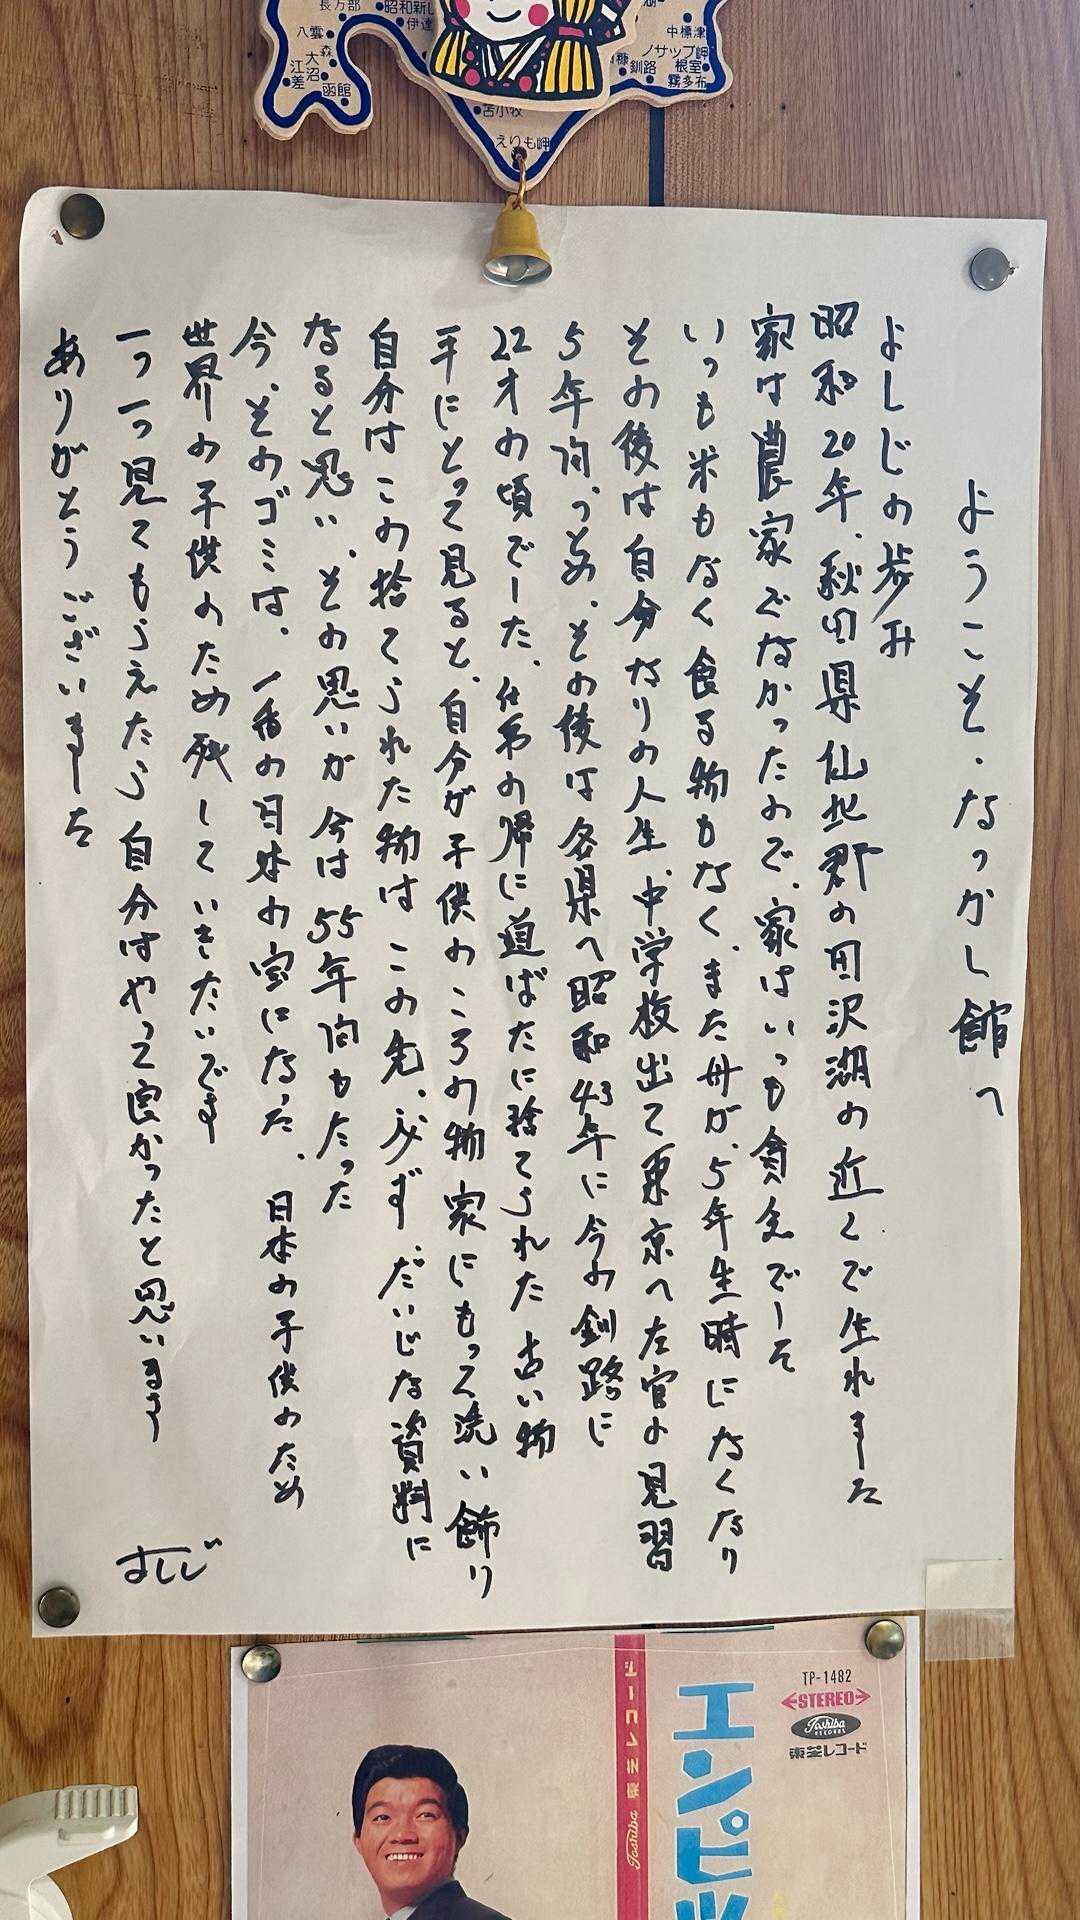 長万部
昭和新
伊達
八雲
森
大沼
江差
函館
苫小牧
えりも岬
中標津
ノサップ岬
釧路
根室
霧多布
ようこそ、なつかし館へ
よしじの歩み
昭和20年、秋田県仙北郡の田沢湖の近くで生れました
家は農家でなかったので、家はいつも貧乏でした
いつも米もなく食る物もなく、また母が、5年生時になくなり
その後は自分なりの人生、中学校出て東京へ左官の見習
5年間つとめ、その後は各県へ昭和43年に今の釧路に
22才の頃でした、仕事の帰に道ばたに捨てられた古い物
手にとって見ると、自分が子供のころの物家にもって洗い飾り
自分はこの捨てられた物はこの先、必ずだいじな資料に
なると思い、その思いが今は55年間もたった
今、そのゴミは、一番の日本の宝になった、日本の子供のため
世界の子供のため残していきたいです
一つ一つ見てもらえたら自分はやって良かったと思います
ありがとうございました
よしじ
TP-1482
STEREO
Toshiba
RECORDS
東芝レコード
Toshiba 東芝レコード
エンピツ